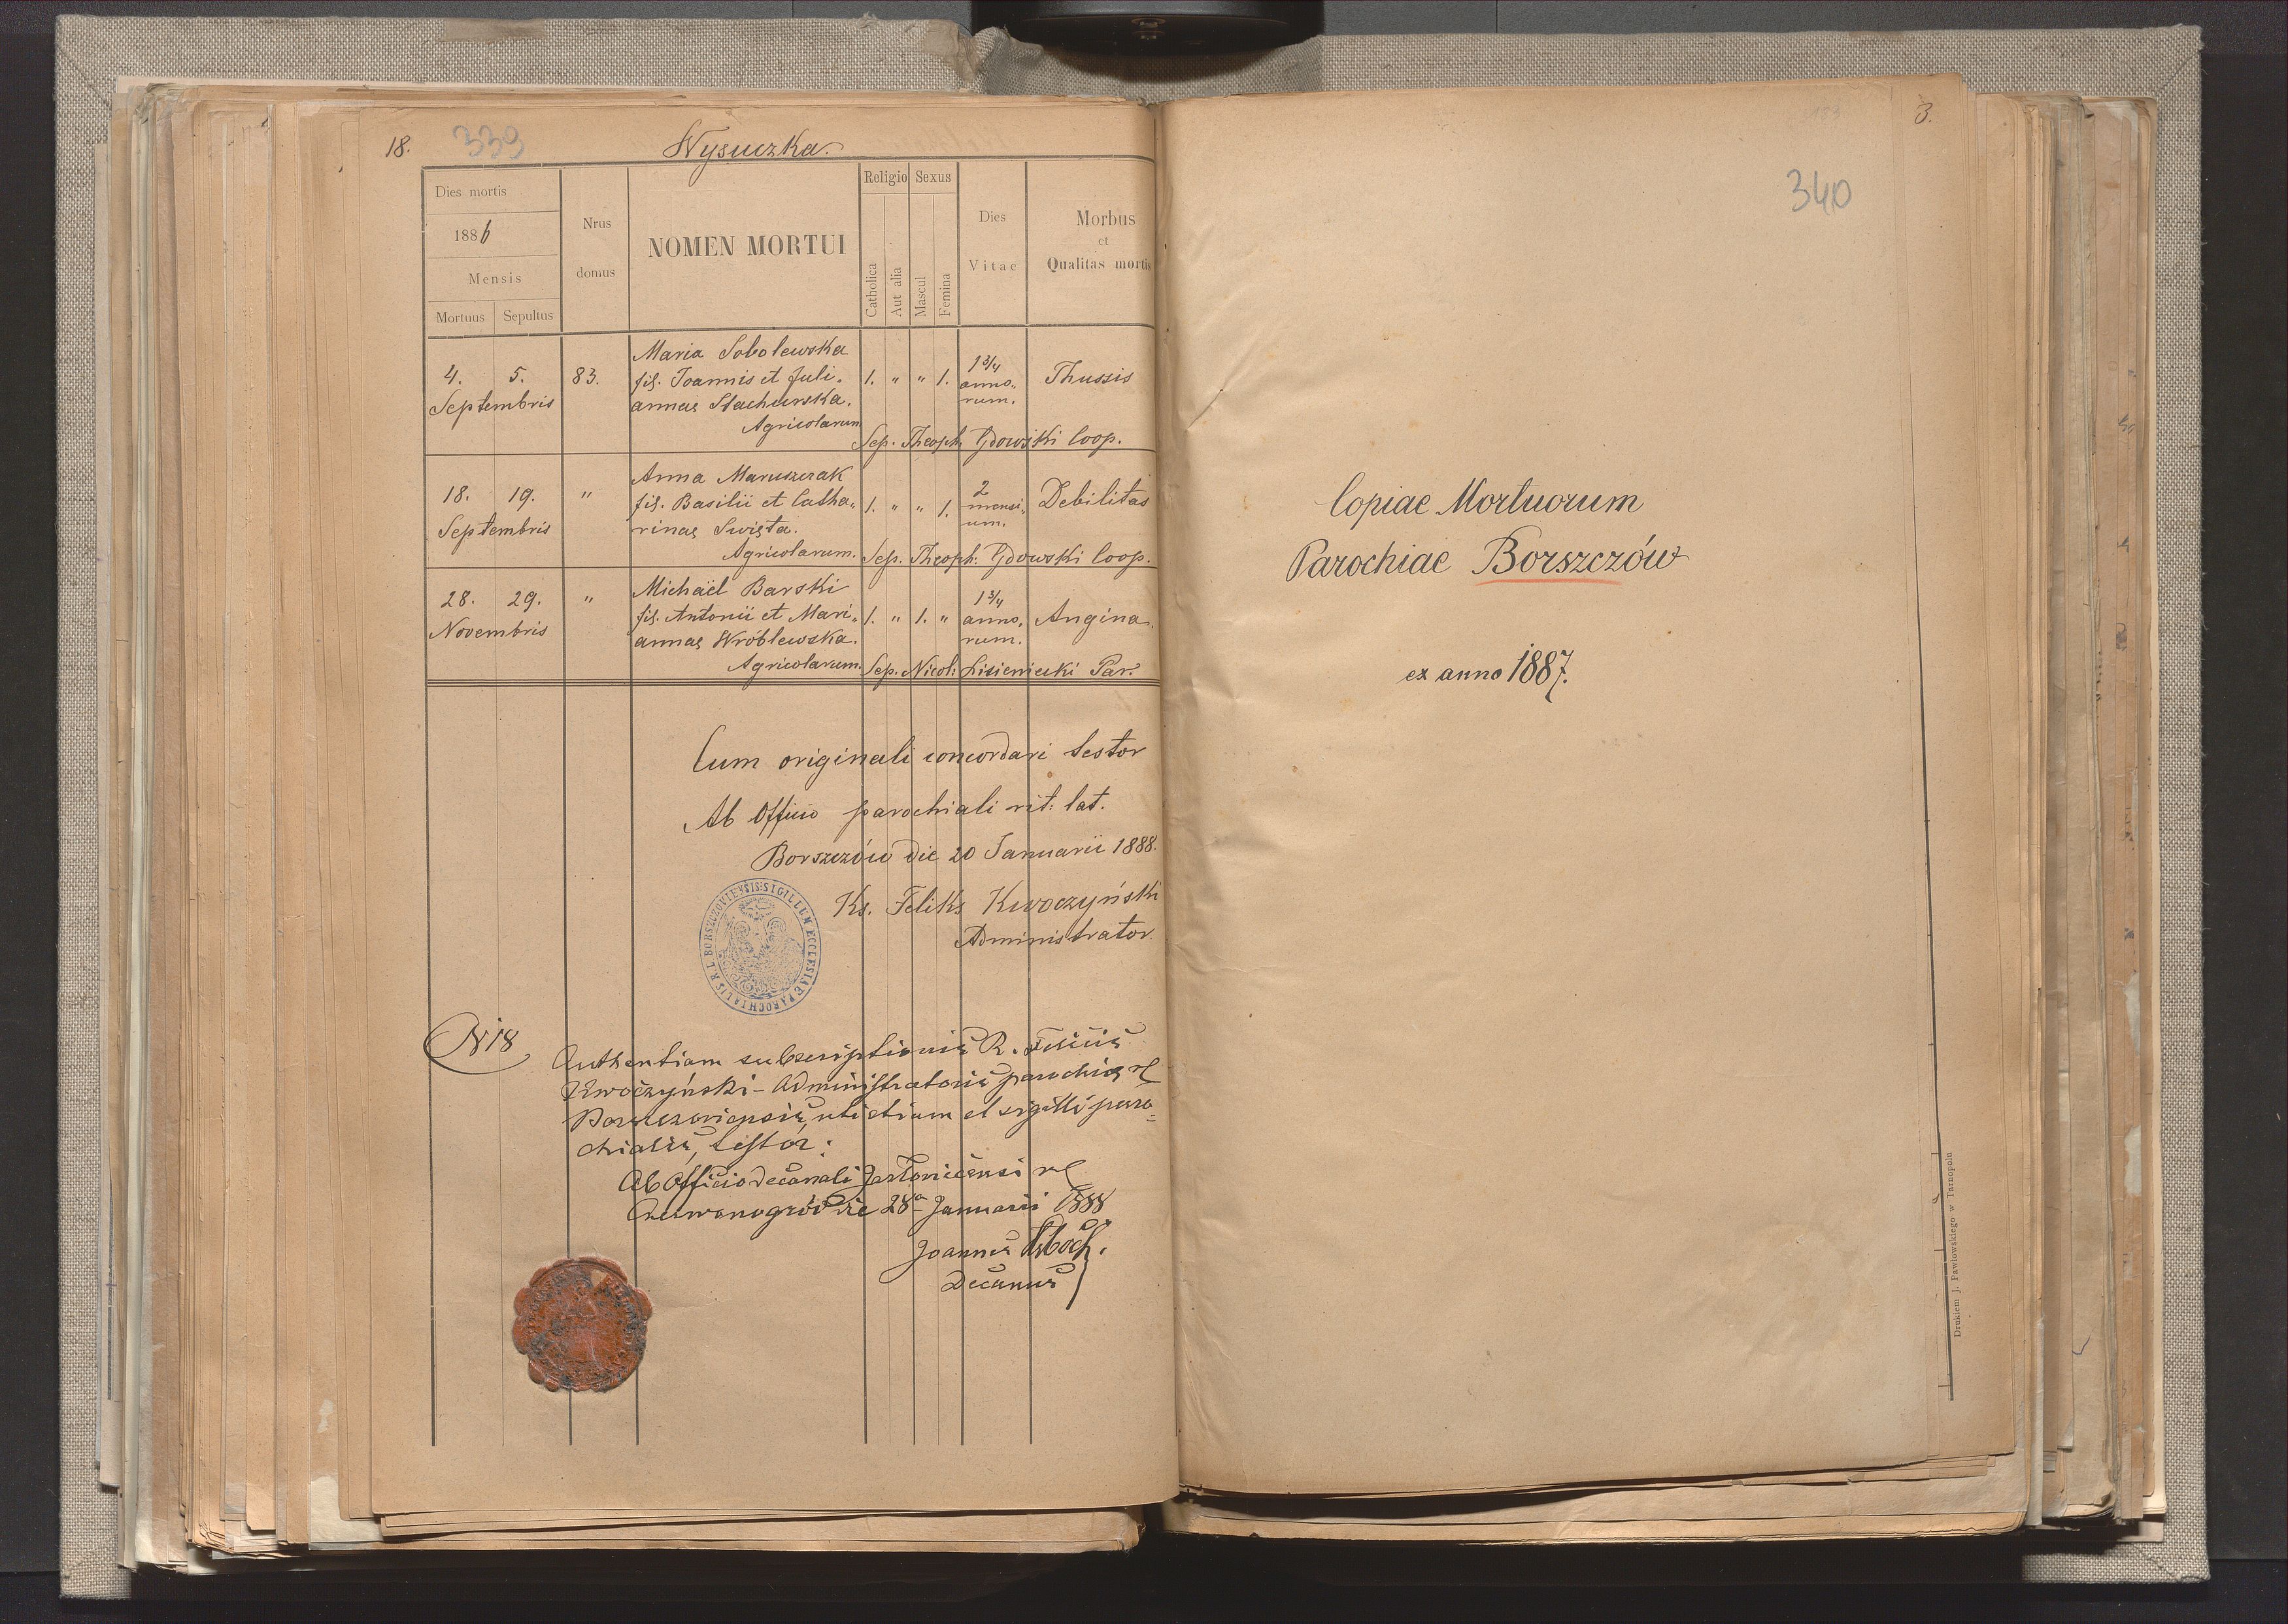 18. 339 Wysuczka.
Dies mortis
1886
Mensis
Mortuus Sepultus
Nrus
domus
NOMEN MORTUI
Religio Sexus
Catholica
Aut alia
Mascul
Femina
Dies
Vitae
Morbus
et
Qualitas mortis
4. 5.
Septembris
83.
Maria Sobolewska
fil. Joannis et Juli„
annae Stachurska.
Agricolarum
1. " " 1.
1 3/4
anno„
rum.
Thussis
Sep. Theoph. Gdowski Coop.
18. 19.
Septembris
"
Anna Maruszczak
fil. Basilii et Catha„
rinae Swięta.
Agricolarum.
1. " " 1.
2
mensi„
um.
Debilitas
Sep. Theoph: Gdowski Coop.
28. 29.
Novembris
"
Michaël Barski
fil. Antonii et Mari„
annae Wróblewska.
Agricolarum.
1. " 1. "
1 3/4
anno„
rum.
Angina.
Sep. Nicol: Lisieniecki Par.
Cum originali concordari testor
Ab Officio parochiali rit: lat.
Borszczów die 20 Januarii 1888.
Ks. Feliks Kwoczyński
Administrator.
SIGILLUM ECCLESIAE PAROCHIALIS R.L. BORSZCZOVIENSIS
N 18
Authentiam subscriptionis R. Felicis
Kwoczyński - Administratoris parochiae rl
Borszczoviensis, uti etiam et sigilli paro=
chialis, testor:
Ab Officio decanali Jazlovicensi rl
Czerwonogród die 28a Januarii 1888
Joannes
Decanus
3.
340
Copiae Mortuorum
Parochiae Borszczów
ex anno 1887.
Drukiem J. Pawłowskiego w Tarnopolu